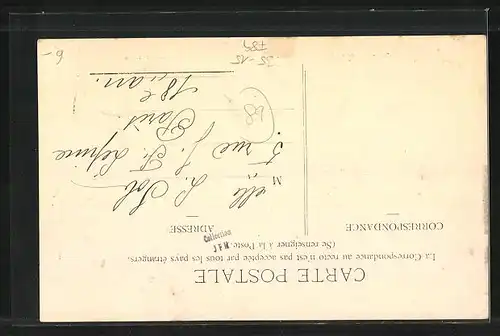 CARTE POSTALE
La Correspondance au recto n'est pas acceptée par tous les pays étrangers.
(Se renseigner à la Poste.)
CORRESPONDANCE
ADRESSE
Collection
J F M
M elle L. Sol
à
5 rue J. F. Lépine
Paris
18e arr.
68
35-15
789
6-